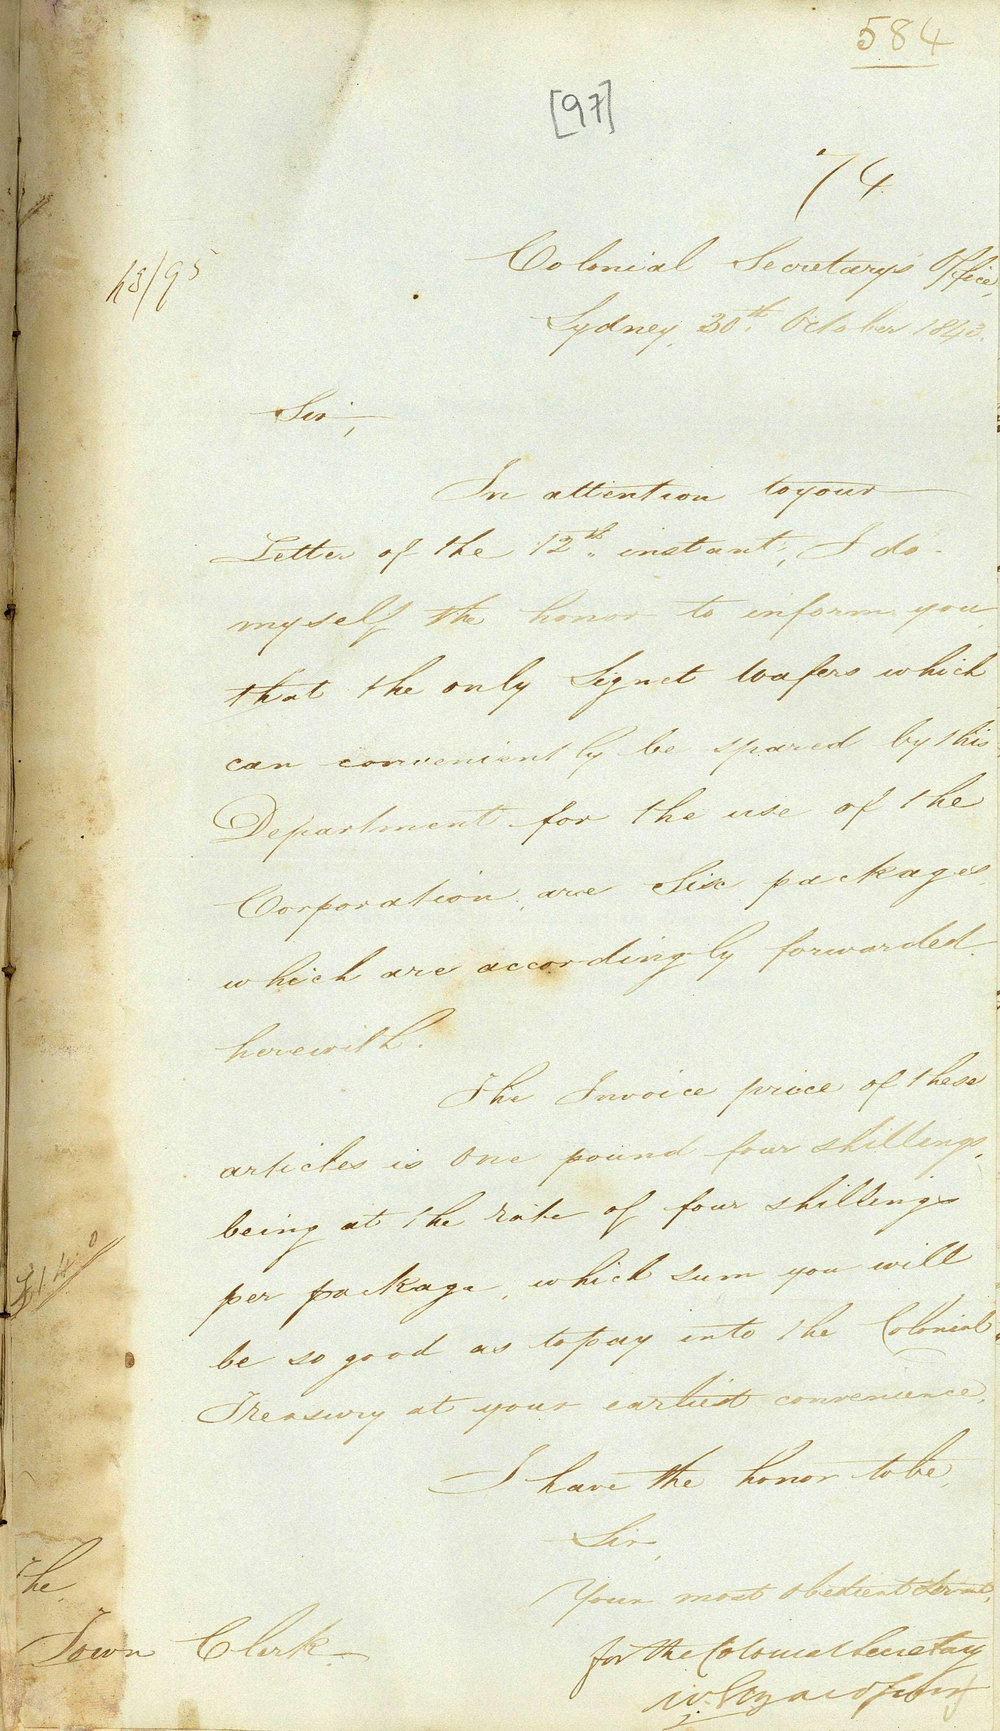 584
[97]
74
43/95
Colonial Secretary's Office,
Sydney, 30th. October 1843.
Sir,
In attention to your
Letter of the 12th. instant, I do
myself the honor to inform you
that the only Signet Wafers which
can conveniently be spared by this
Department for the use of the
Corporation, are Six packages
which are accordingly forwarded
herewith.
The Invoice price of these
articles is One pound four shillings,
being at the rate of four shillings
per package, which sum you will
be so good as to pay into the Colonial
Treasury at your earliest convenience.
£1 4 0
I have the honor to be,
Sir,
Your most obedient Servant,
for the Colonial Secretary
The
Town Clerk